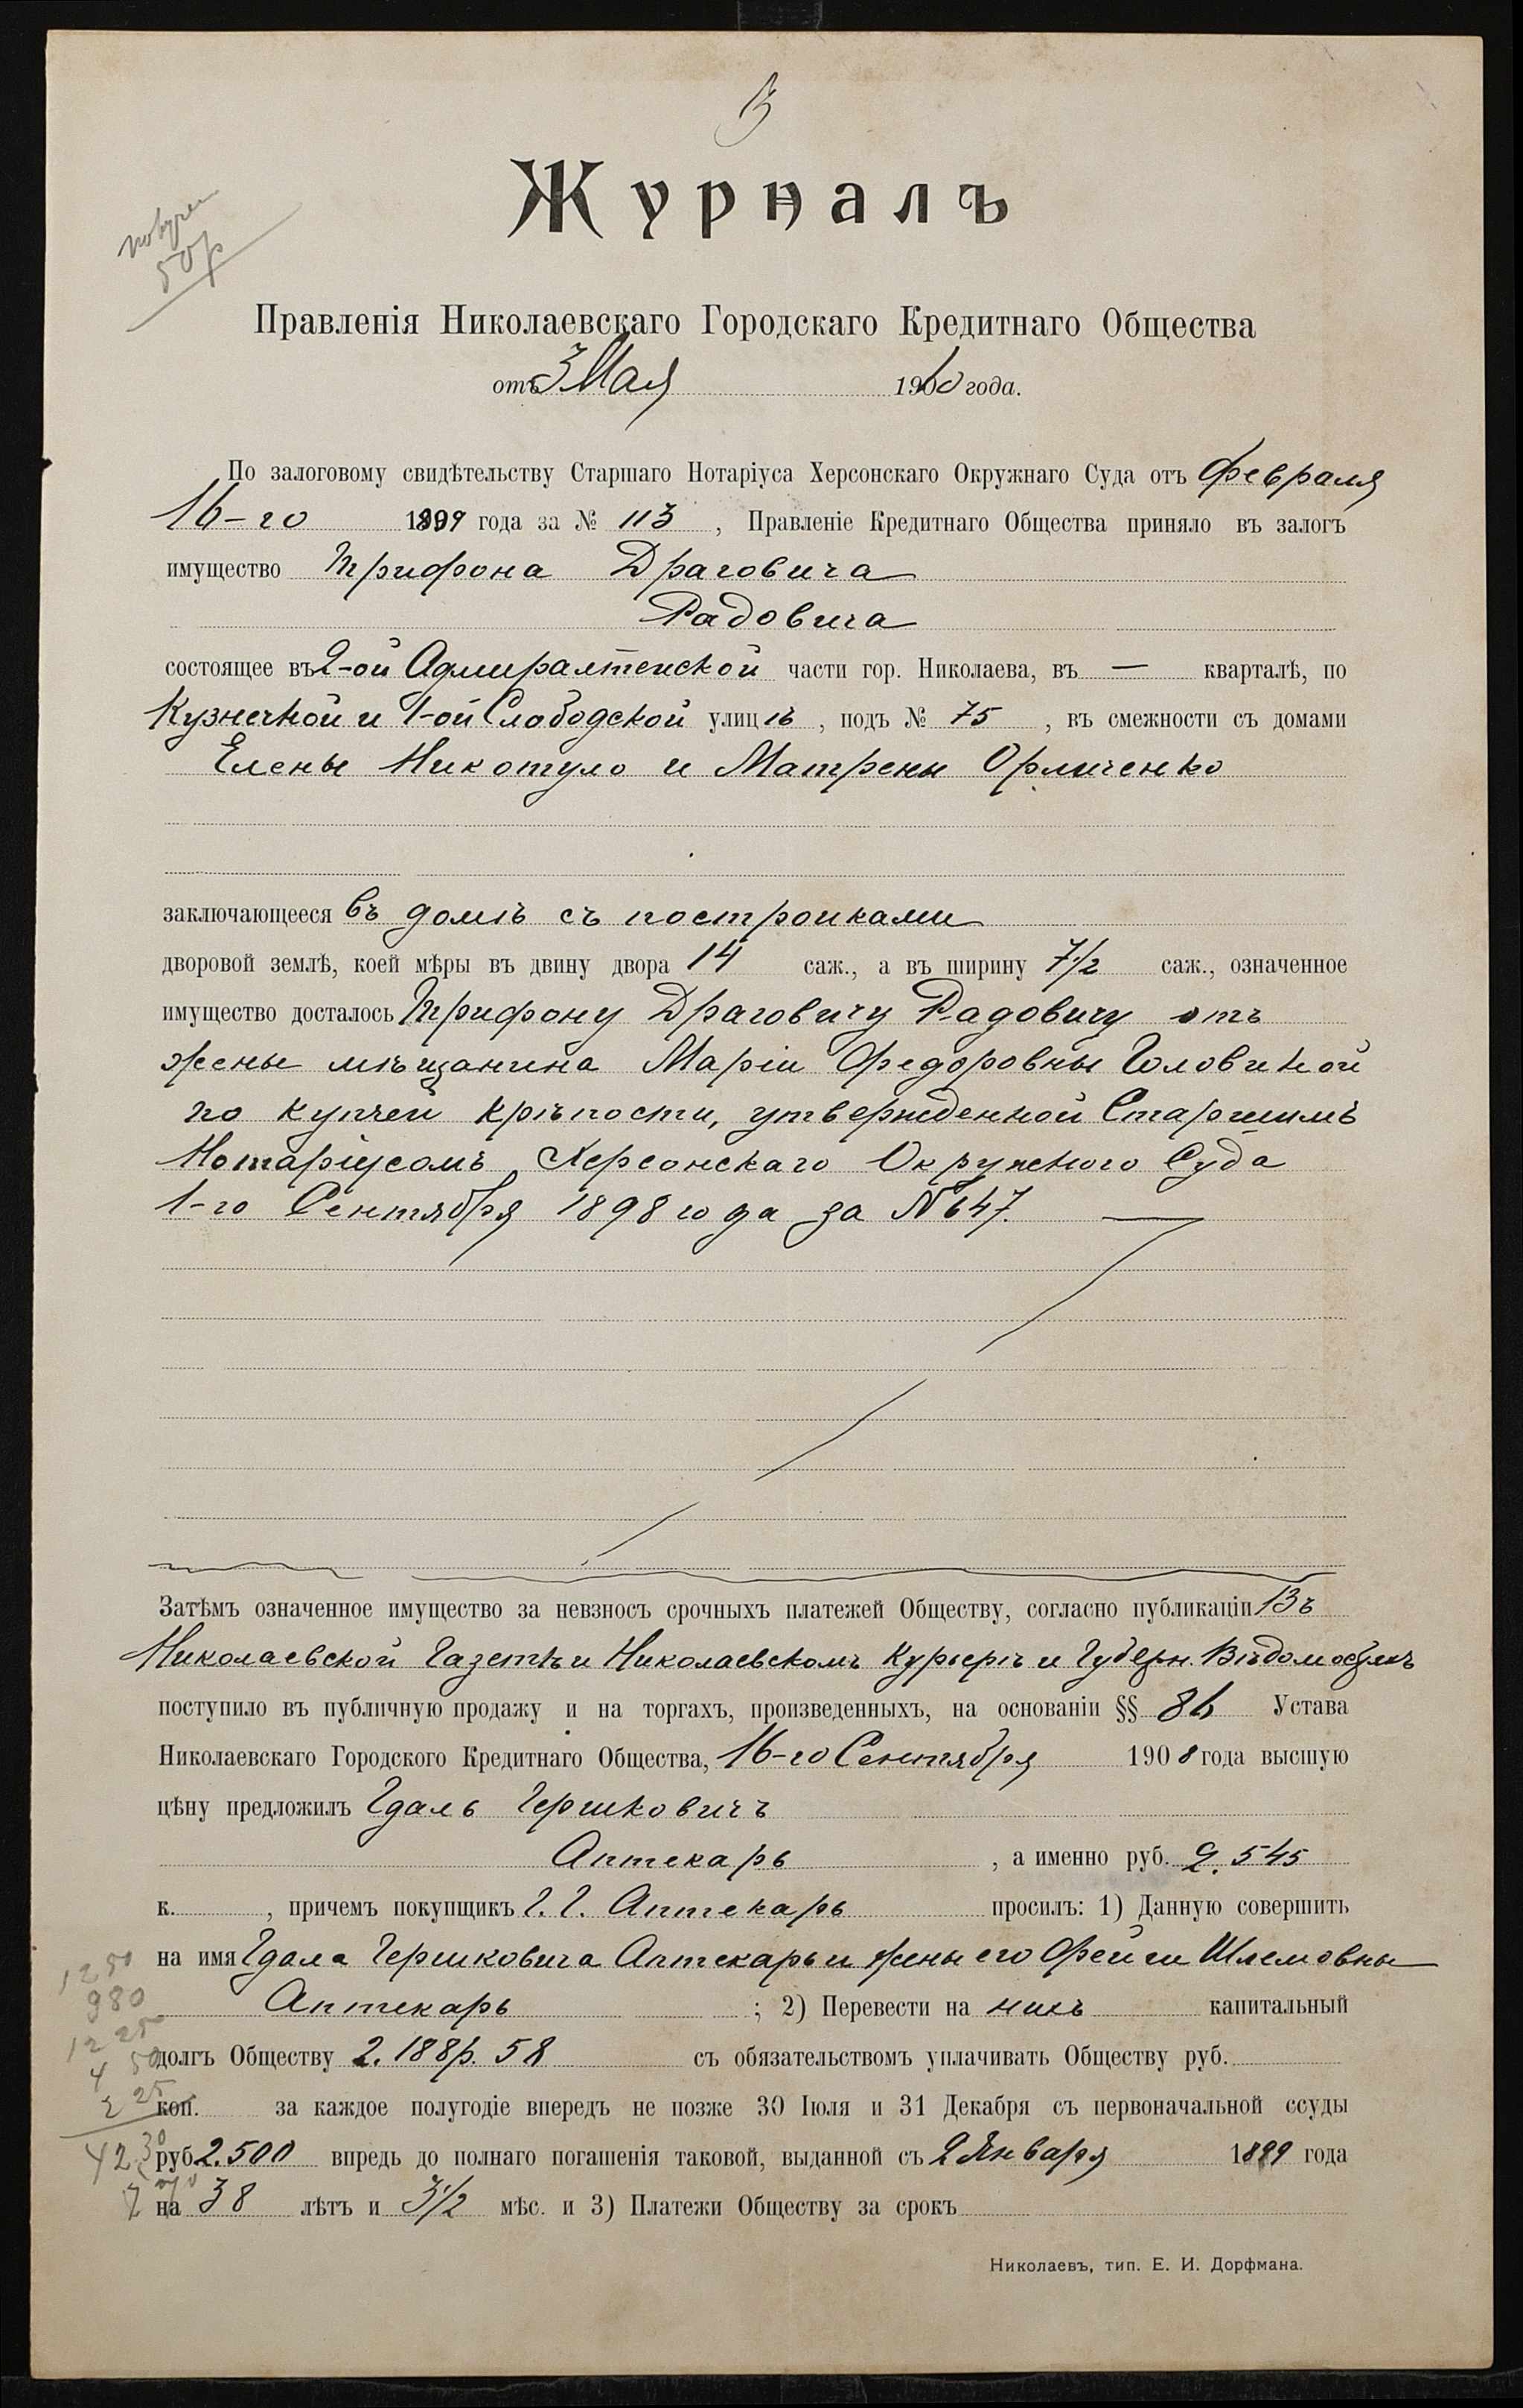 Журналъ
50р
Правленія Николаевскаго Городскаго Кредитнаго Общества
отъ 3 Мая 1910 года.
По залоговому свидѣтельству Старшаго Нотаріуса Херсонскаго Окружнаго Суда отъ Февраля
16-го 1899 года за № 113, Правленіе Кредитнаго Общества приняло въ залогъ
имущество Трифона Драговича
Радовича
состоящее въ 2-ой Адмиралтейской части гор. Николаева, въ — кварталѣ, по
Кузнечной и 1-ой Слободской улицѣ, подъ № 75, въ смежности съ домами
Елены Никотуло и Матрены Орличенко
заключающееся въ домѣ съ постройками
дворовой землѣ, коей мѣры въ двину двора 14 саж., а въ ширину 7 1/2 саж., означенное
имущество досталось Трифону Драговичу Радовичу отъ
жены мѣщанина Маріи Федоровны Головиной
по купчей крѣпости, утвержденной Старшимъ
Нотаріусомъ Херсонскаго Окружного Суда
1-го Сентября 1898 года за № 647.
Затѣмъ означенное имущество за невзносъ срочныхъ платежей Обществу, согласно публикаціи въ
Николаевской Газетѣ и Николаевскомъ Курьерѣ и Губерн. Вѣдомостяхъ
поступило въ публичную продажу и на торгахъ, произведенныхъ, на основаніи §§ 86 Устава
Николаевскаго Городского Кредитнаго Общества, 16-го Сентября 1908 года высшую
цѣну предложилъ Гдаль Гершковичъ
Аптекарь, а именно руб. 2.545
к., причемъ покупщикъ Г. Г. Аптекарь просилъ: 1) Данную совершить
на имя Гдаля Гершковича Аптекарь и жены его Фейги Шлемовны
Аптекарь; 2) Перевести на нихъ капитальный
долгъ Обществу 2.188р. 58 съ обязательствомъ уплачивать Обществу руб.
коп. за каждое полугодіе впередъ не позже 30 Іюля и 31 Декабря съ первоначальной ссуды
руб. 2.500 впредь до полнаго погашенія таковой, выданной съ 2 Января 1899 года
на 38 лѣтъ и 3 1/2 мѣс. и 3) Платежи Обществу за срокъ
12 50
980
12 25
4 50
2 25
42 30
Николаевъ, тип. Е. И. Дорфмана.